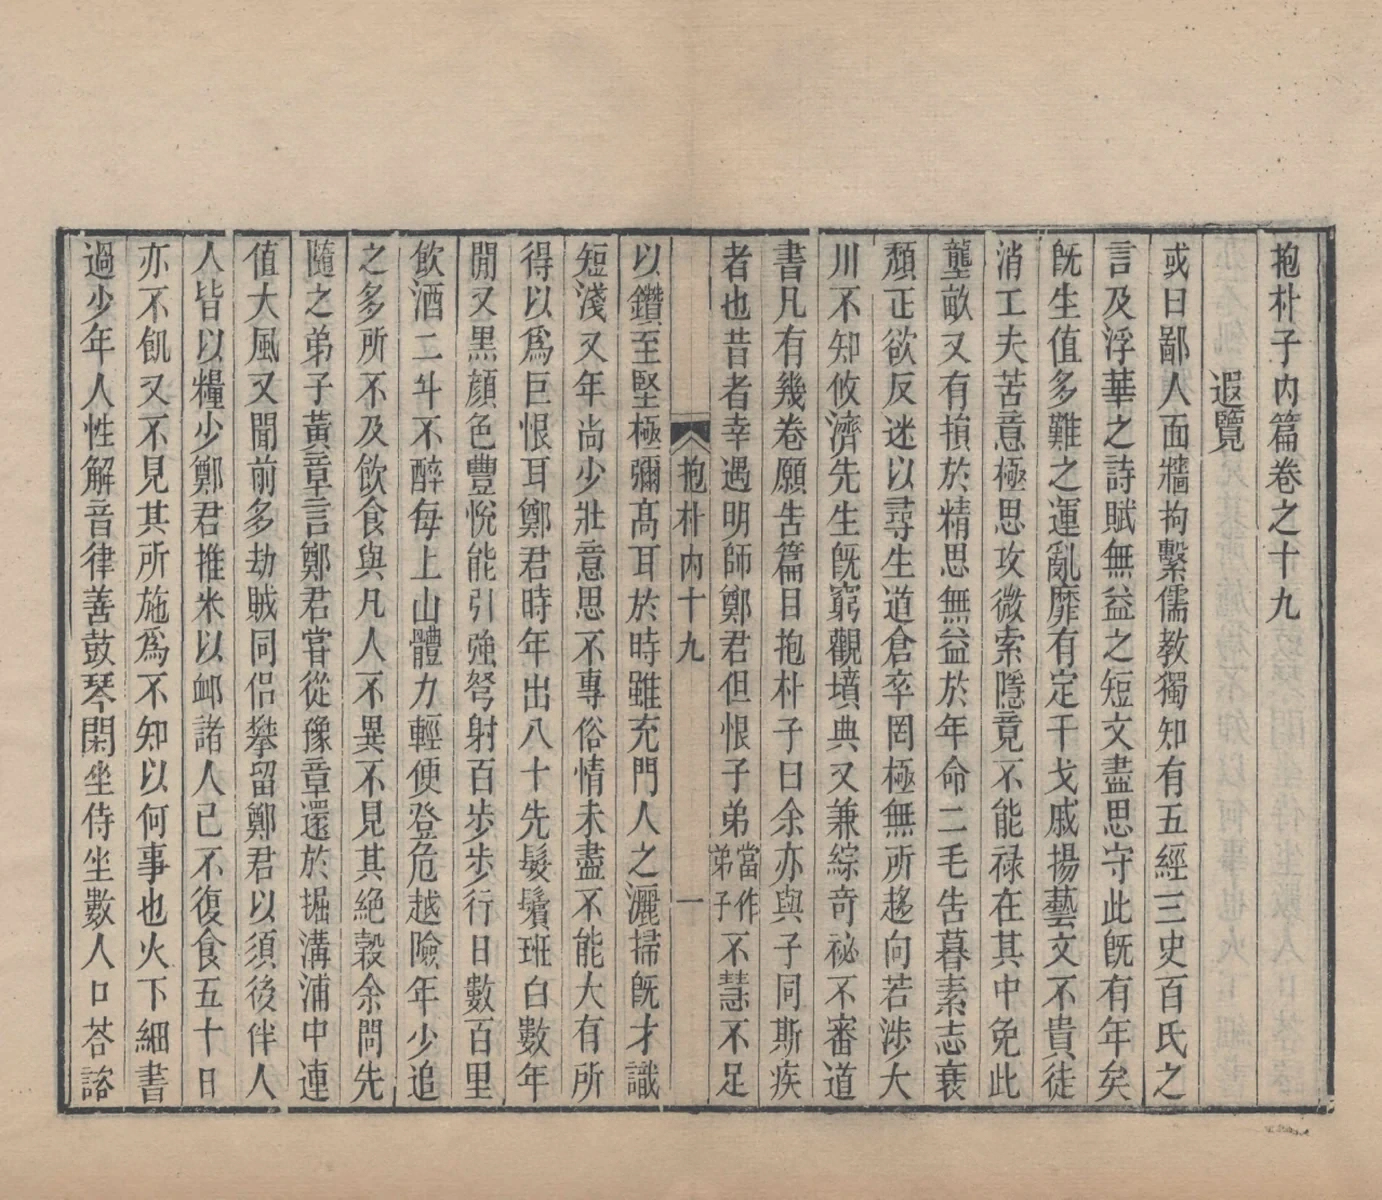 抱朴子内篇卷之十九
遐覽
或曰鄙人面牆拘繫儒教獨知有五經三史百氏之
言及浮華之詩賦無益之短文盡思守此旣有年矣
旣生值多難之運亂靡有定干戈戚揚藝文不貴徒
消工夫苦意極思攻微索隱竟不能禄在其中免此
壟畝又有損於精思無益於年命二毛告暮素志衰
頹正欲反迷以尋生道倉卒罔極無所趍向若涉大
川不知攸濟先生旣窮觀墳典又兼綜奇祕不審道
書凡有幾卷願告篇目抱朴子曰余亦與子同斯疾
者也昔者幸遇明師鄭君但恨子弟當作弟子不慧不足
抱朴内十九 一
以鑽至堅極彌髙耳於時雖充門人之灑掃旣才識
短淺又年尚少壯意思不專俗情未盡不能大有所
得以爲巨恨耳鄭君時年出八十先髮鬢班白數年
閒又黒顔色豐悅能引強弩射百步步行日數百里
飲酒二斗不醉每上山體力輕便登危越險年少追
之多所不及飲食與凡人不異不見其絶穀余問先
隨之弟子黃章言鄭君嘗從豫章還於掘溝浦中連
值大風又聞前多劫賊同侶攀留鄭君以須後伴人
人皆以糧少鄭君推米以䘏諸人己不復食五十日
亦不飢又不見其所施爲不知以何事也火下細書
過少年人性解音律善鼓琴閑坐侍坐數人口荅諮